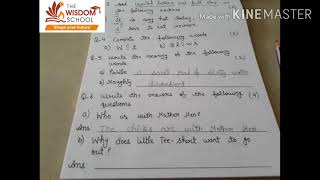 THE
WISDOM
SCHOOL
"Shape your future"
Made With
KINEMASTER
Q.3 Add capital letters and full stop in
the following sentence
it is very hot today.
Q.4 Complete the following words (2)
a) W S t b)
Q.5 Write the meaning of the following (2)
words
a) Puddle a small pool of dirty water
b) Naughty disobedient
Q.6 Write the answers of the following (4)
questions
a) Who is with Mother Hen?
Ans The chicks are with Mother Hen
b) Why does little Tee-shirt want to go
out?
Ans